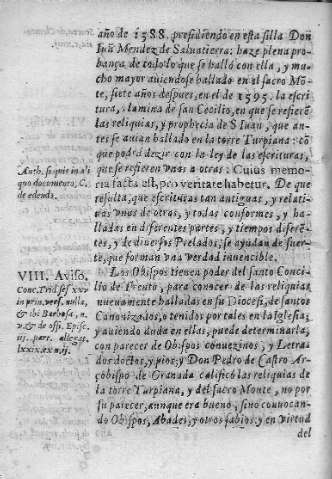 año de 1588. presidiendo en esta silla Don
Iuã Mendez de Salvatierra: haze plena pro-
bança, de todo lo que se halló con ella, y mu-
cho mayor aviendose hallado en el sacro Mõ-
te, siete años despues, en el de 1595. la escri-
tura, ò lamina de san Cecilio, en que se refierẽ
las reliquias, y prophecia de S. Iuan, que an-
tes se avian hallado en la torre Turpiana: cõ
que podrà dezir con la ley de las escrituras,
que se refieren unas a otras: Cuius memo-
ria facta est, pro veritate habetur. De que
resulta, que escrituras tan antiguas, y relati-
vas unas de otras, y todas conformes, y ha-
lladas en diferentes partes, y tiempos diferẽ-
tes, y de diversos Prelados, se ayudan de suer-
te, que forman una verdad invencible.
Auth. si quis in ali
quo documento, C.
de edendo.
VIII. Aviso.
Conc. Trid. ses. xxv
in prin. vers. nulla,
& ibi Barbosa, n.
& de offi. Episc.
iij. part. allegat.
Los Obispos tienen poder del santo Conci-
lio de Trento, para conocer de las reliquias
nuevamente halladas en su Diocesi, de santos
Canonizados, o tenidos por tales en la Iglesia;
y aviendo duda en ellas, puede determinarla,
con parecer de Obispos convezinos, y Letra-
dos doctos, y pios; y Don Pedro de Castro Ar-
çobispo de Granada calificò las reliquias de
la torre Turpiana, y del sacro Monte, no por
su parecer, aunque era bueno, sino convocan-
do Obispos, Abades, y otros sabios, y en virtud
del